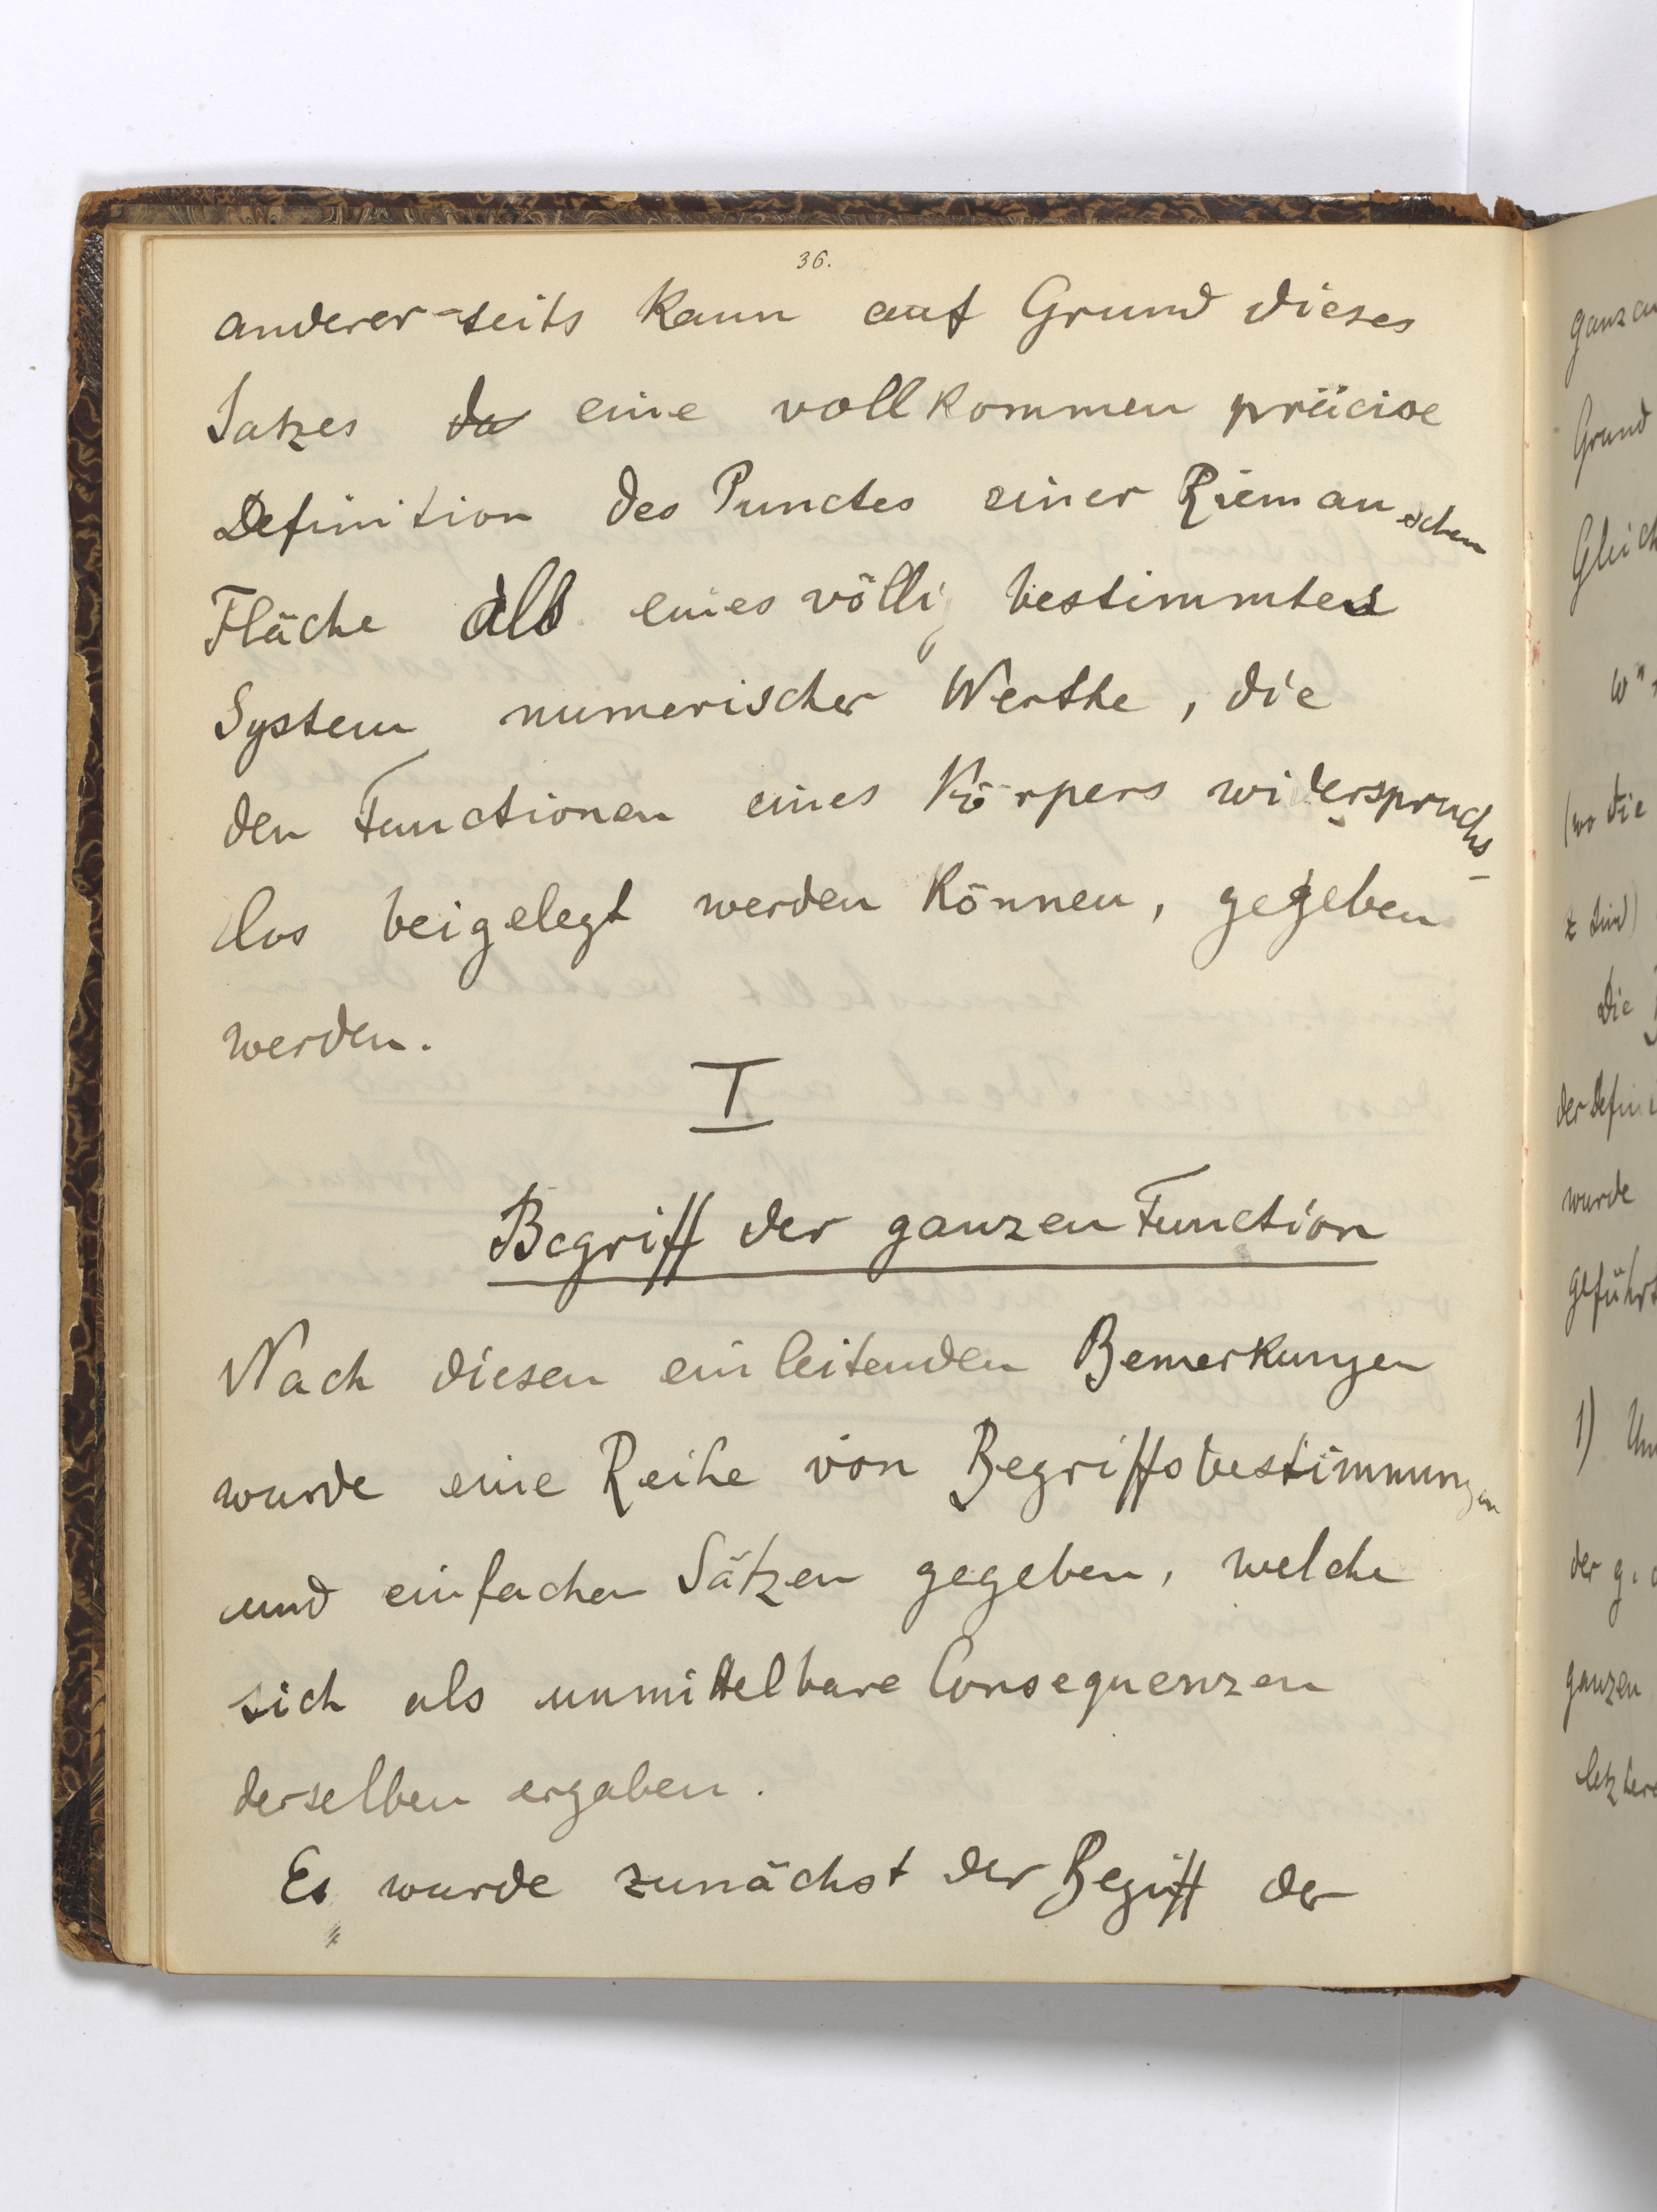 36.
anderer-seits kann auf Grund dieses
Satzes da eine vollkommen präcise
Definition des Punctes einer Riemanschen
Fläche als eines völlig bestimmten
System numerischer Werthe, die
den Functionen eines Körpers widerspruchs-
los beigelegt werden können, gegeben
werden.
I
Begriff der ganzen Function
Nach diesen einleitenden Bemerkungen
wurde eine Reihe von Begriffsbestimmungen
und einfachen Sätzen gegeben, welche
sich als unmittelbare Consequenzen
derselben ergaben.
Es wurde zunächst der Begriff der
ganzen
Grund
Gleich
(wo die
z sind)
Die
der Defini
wurde
geführt
1) Um
der g.
ganzen
letztere